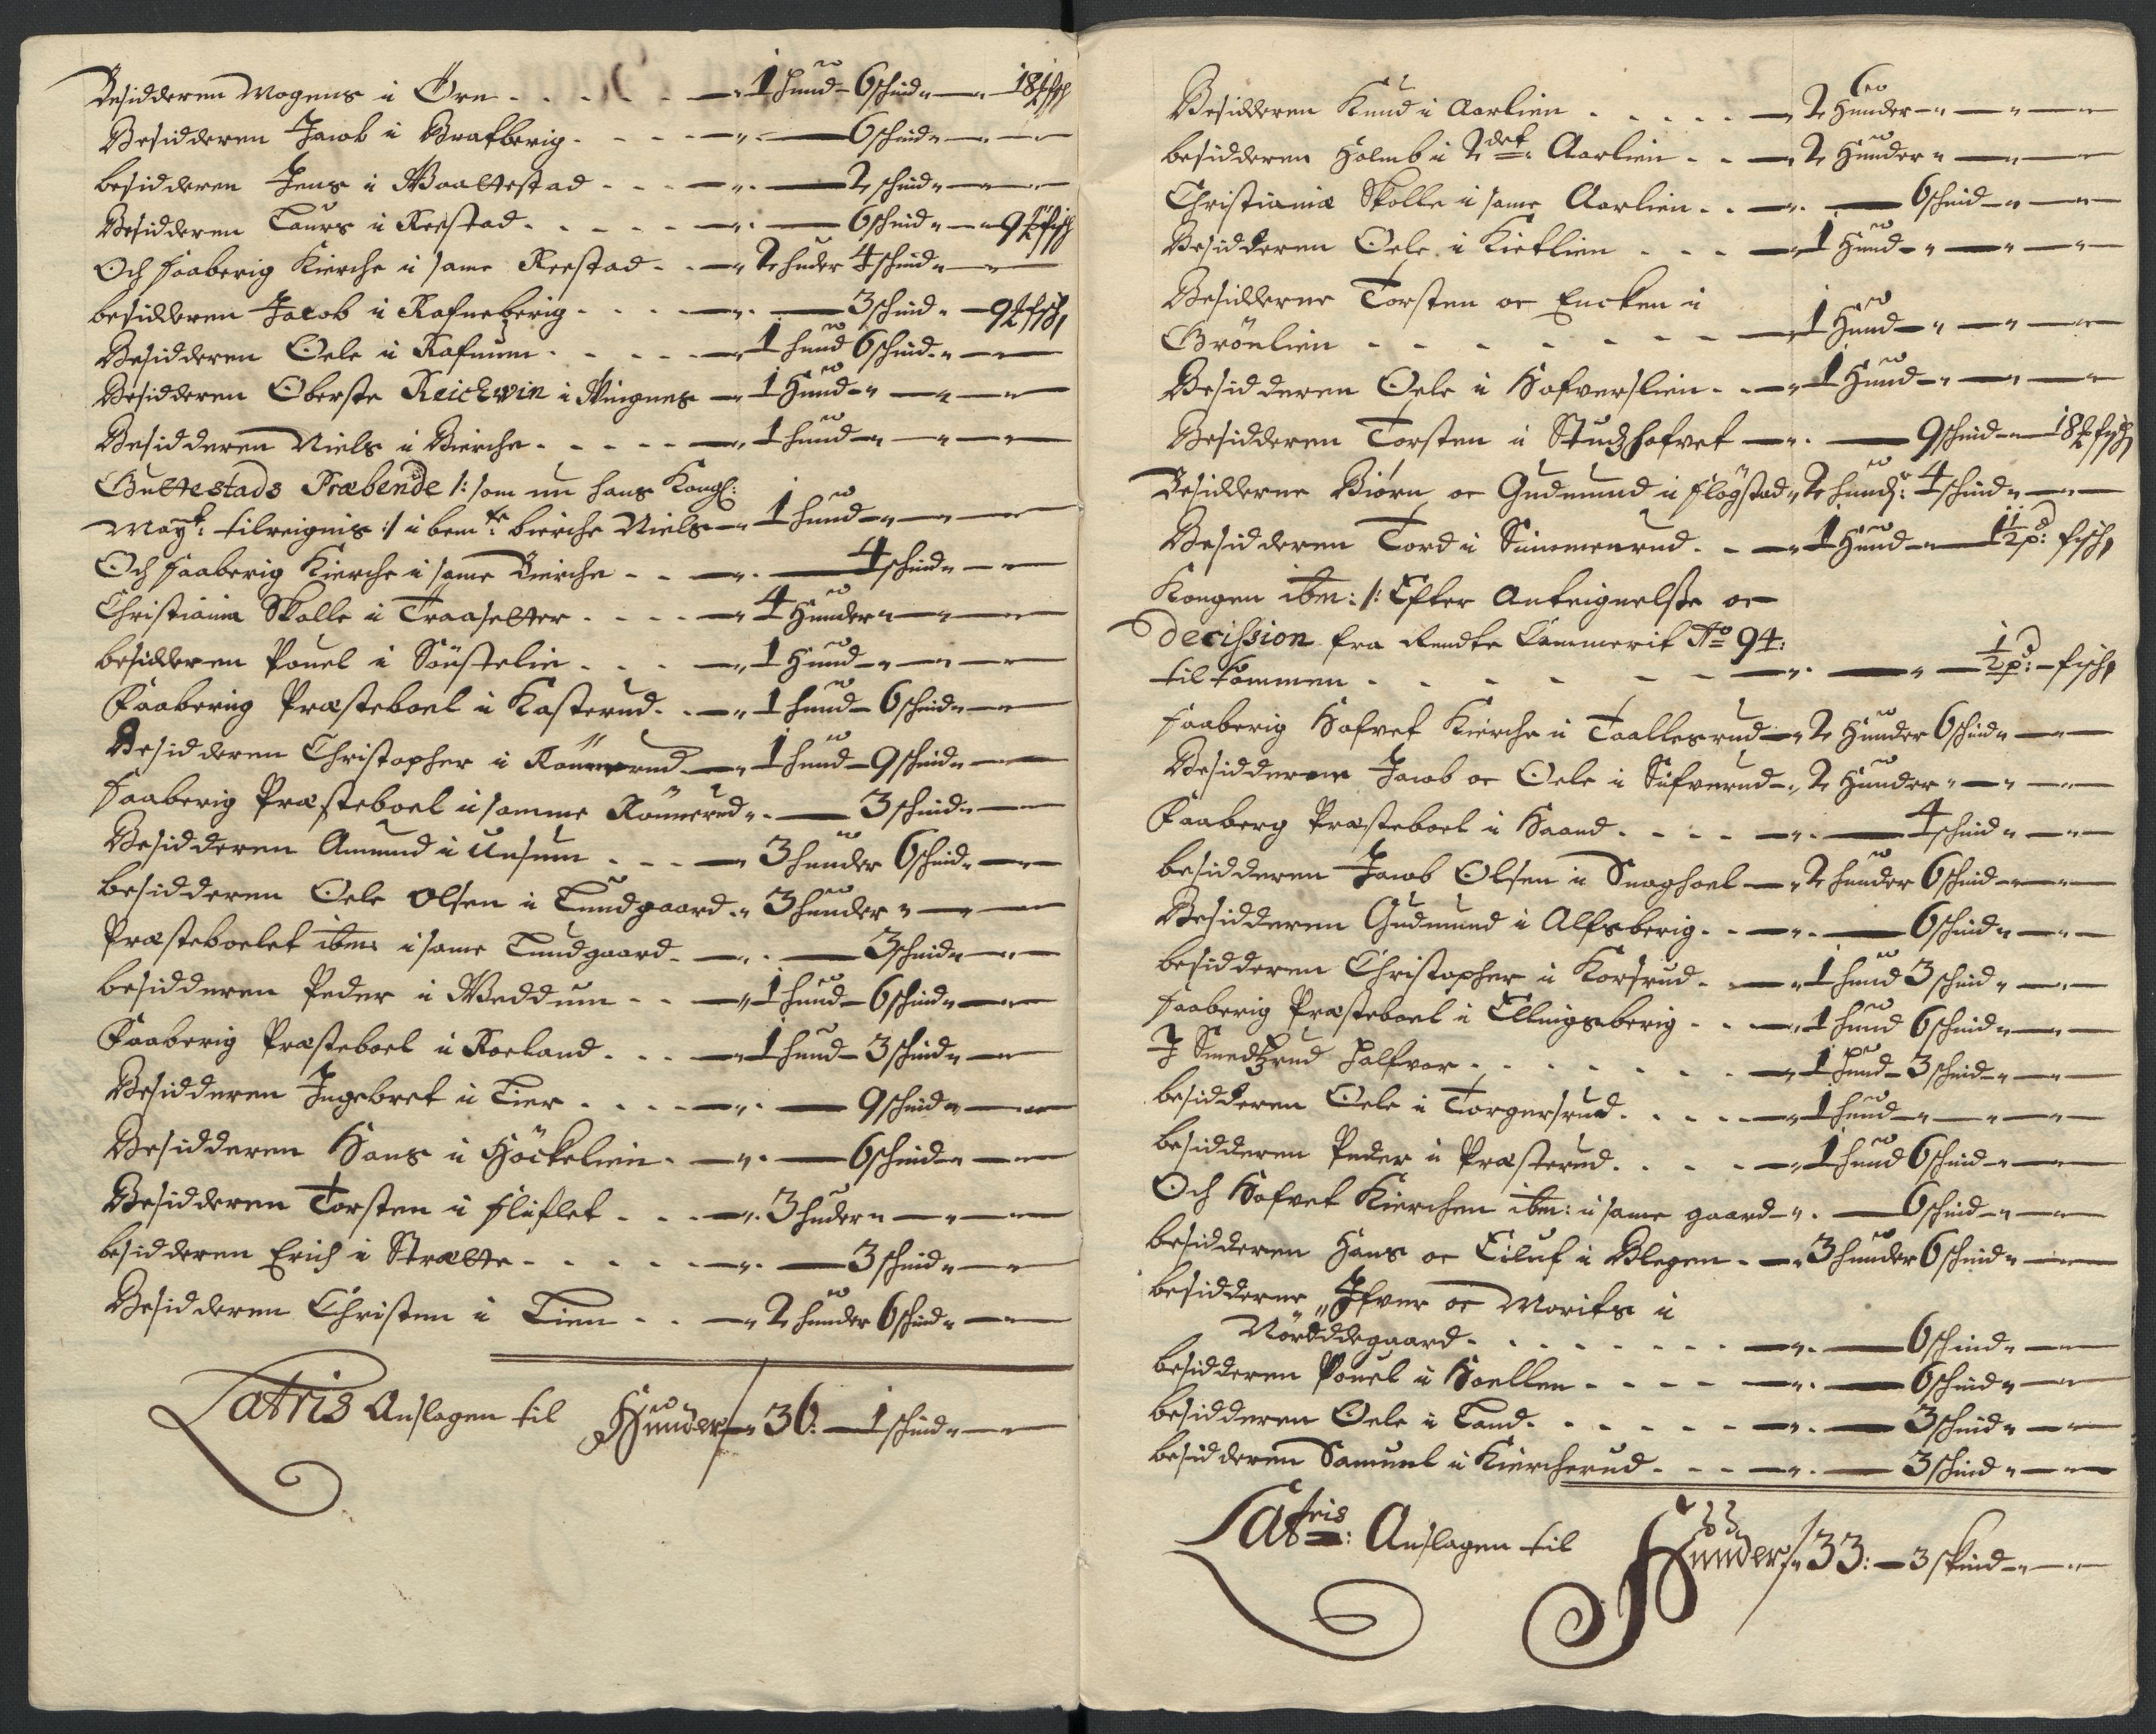 Besidderen Mogens i Øre - - - - - 1 hund - 6 schind - 18 ℔ fisch
Besidderen Jacob i Brafberig - - - 6 schind
besidderen Jens i Waaltestad - - - 2 schind
Besidderen Laurs i Reestad - - - - 6 schind - 9 ℔ fisch
Och faaberig Kierche i same Reestad - - 2 huder 4 schind
besidderen Jacob i Rafneberig - - - 3 schind - 9 ℔ fisch
Besidderen Oele i Rafnum - - - - 1 hund 6 schind
Besidderen Oberste Reichwin i Wingnes - 1 Hund
Besidderen Niels i Bierche - - - - 1 hund
Gultestads Præbende /: som nu hans Kongl:
Mayt: tilreignis :/ i bemte bierche Niels - 1 hund
Och faaberig Kierche i same Bierche - - 4 schind
Christiania Skolle i Traaseltter - - - 4 Hunder
besidderen Pouel i Söustelin - - - 1 Hund
Faaberig Præsteboel i Kasterud - - 1 hund - 6 schind
Besidderen Christopher i Rönnerud - 1 hund - 9 schind
faaberig Præsteboel i samme Rönnerud - 3 schind
Besidderen Amund i Unsum - - - 3 hunder 6 schind
besidderen Oele Olsen i Lundgaard - 3 hunder
Præsteboelet ibm: i same Lundgaard - 3 schind
besidderen Peder i Weddum - - 1 hund - 6 schind
Faaberig Præsteboel i Roeland - - - 1 hund - 3 schind
Besidderen Ingebret i Lier - - - - 9 schind
Besidderen Hans i Höckelien - - 6 schind
Besidderen Torsten i fliflet - - - 3 huder
besidderen Erich i Strætte - - - - 3 schind
Besidderen Christen i Lien - - - 2 hunder 6 schind
Latris Anslagen til Hunder 36: - 1 schind
Besidderen Knud i Aarlien - - - - - 2 Hunder
besidderen Holmb i 2det Aarlien - - 2 Hunder
Christianiæ Skolle i same Aarlien - - 6 schind
Besidderen Oele i Kietlien - - - 1 Hund
Besidderne Torsten oc Encken i
Grönlien - - - - - - - - 1 Hund
Besidderen Oele i Hofverslien - - 1 Hund
Besidderen Torsten i Studzhofvet - 9 schind - 18 ℔ fisch
Besidderne Biørn oc Gudmund i flögstad 2 hundr: 4 schind
Besidderen Tord i Summenrud - - 1 Hund - 1½ pd: fisch
Kongen ibm: /: Efter Anteignelsse oc
Decission fra Rendte Cammerit Ao 94:
til kommen - - - - - - - - ½ pd: - fisch
faaberig Hofvet Kierche i Taallesrud - 2 Hunder 6 schind
Besidderne Jacob oc Oele i Sifverud - 2 Hunder
Faaberg Præsteboel i Haand - - - - 4 schind
besidderen Jacob Olsen i Snaghoel - 2 hunder 6 schind
Besidderen Gudmund i Alfsberig - - 6 schind
besidderen Christopher i Korsrud - 1 hund 3 schind
faaberig Præsteboel i Ellingsberig - - 1 hund 6 schind
I Smedtzrud Halfvor - - - - - - 1 hund - 3 schind
besidderen Oele i Torgersrud - - - - 1 hund
besidderen Peder i Præsterud - - - - 1 hund 6 schind
Och Hofvet Kierchen ibm: i same gaard - 6 schind
besidderen Hans oc Eiluf i Blegen - 3 hunder 6 schind
besidderne Ifver oc Morits i
Nördddegaard - - - - - - - 6 schind
besidderen Pouel i Hoellen - - - - 6 schind
besidderen Oele i Land - - - - - 3 schind
besidderen Samuel i Kiercherud - - - 3 schind
Latris: Anslagen til Hunder 33: - 3 skind